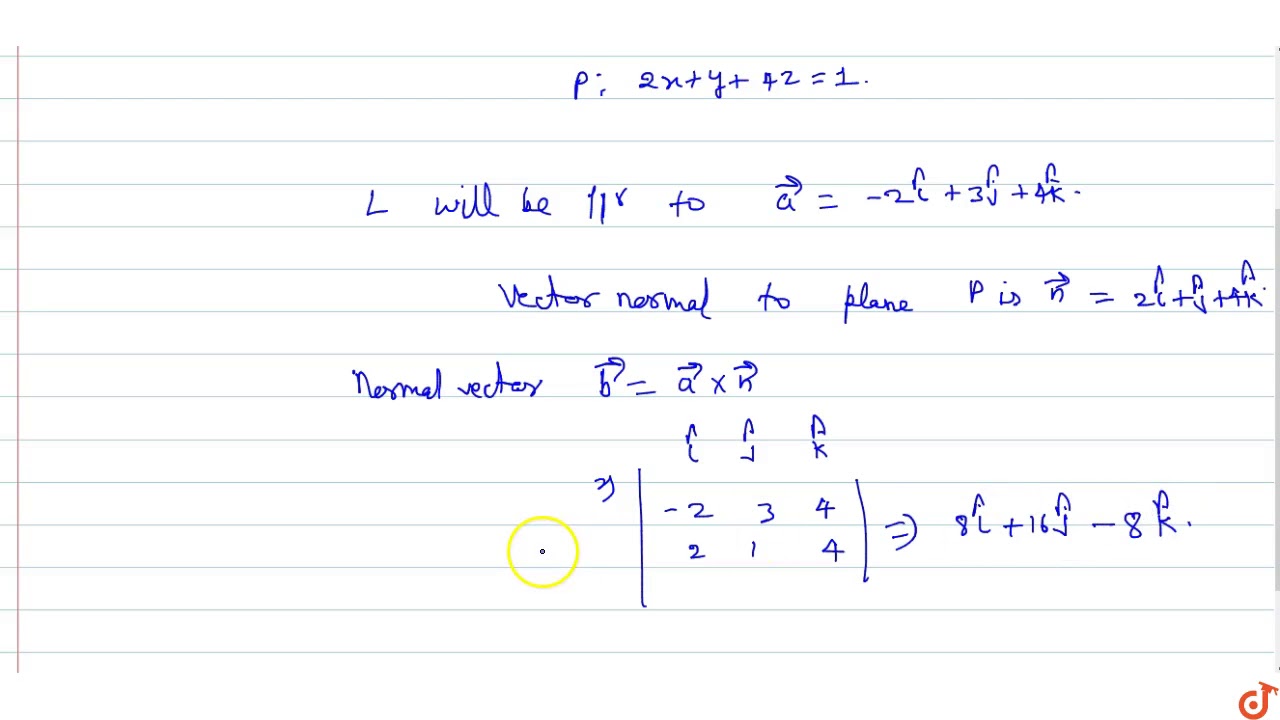 P: 2x+y+4z=1.
L will be ||r to a⃗ = -2î + 3ĵ + 4k̂.
Vector normal to plane P is n⃗ = 2î+ĵ+4k̂.
Normal vector b⃗ = a⃗ × n⃗
î ĵ k̂
⇒ | -2 3 4 | ⇒ 8î + 16ĵ - 8k̂.
| 2 1 4 |